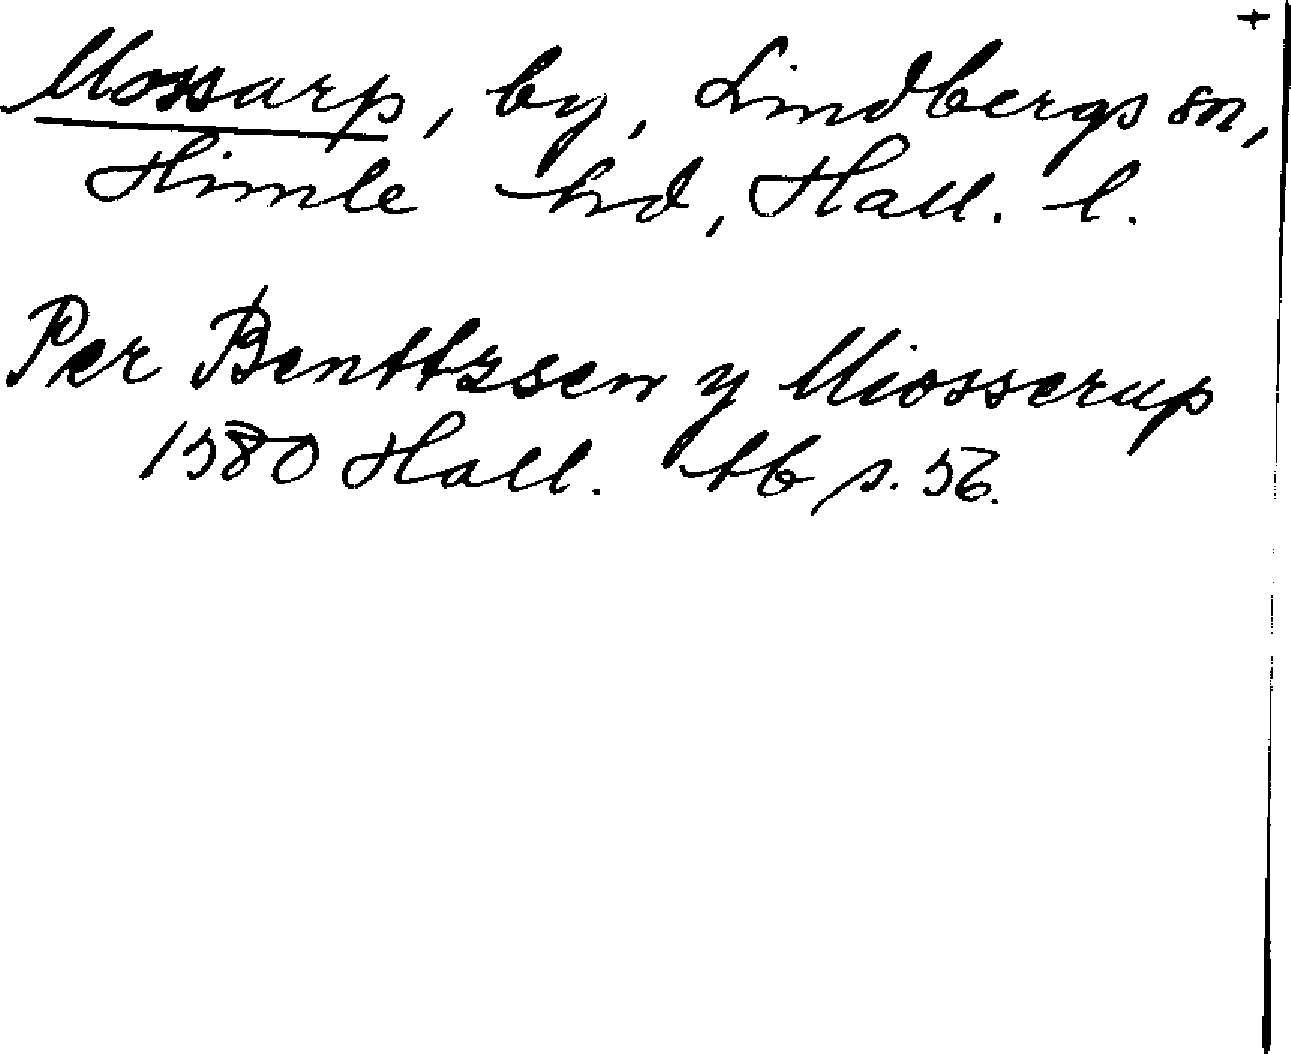 Mossarp, by, Lindbergs sn,
Himle hd, Hall. l.
Per Benttzsen y Miosserup
1580 Hall. tb s. 56.